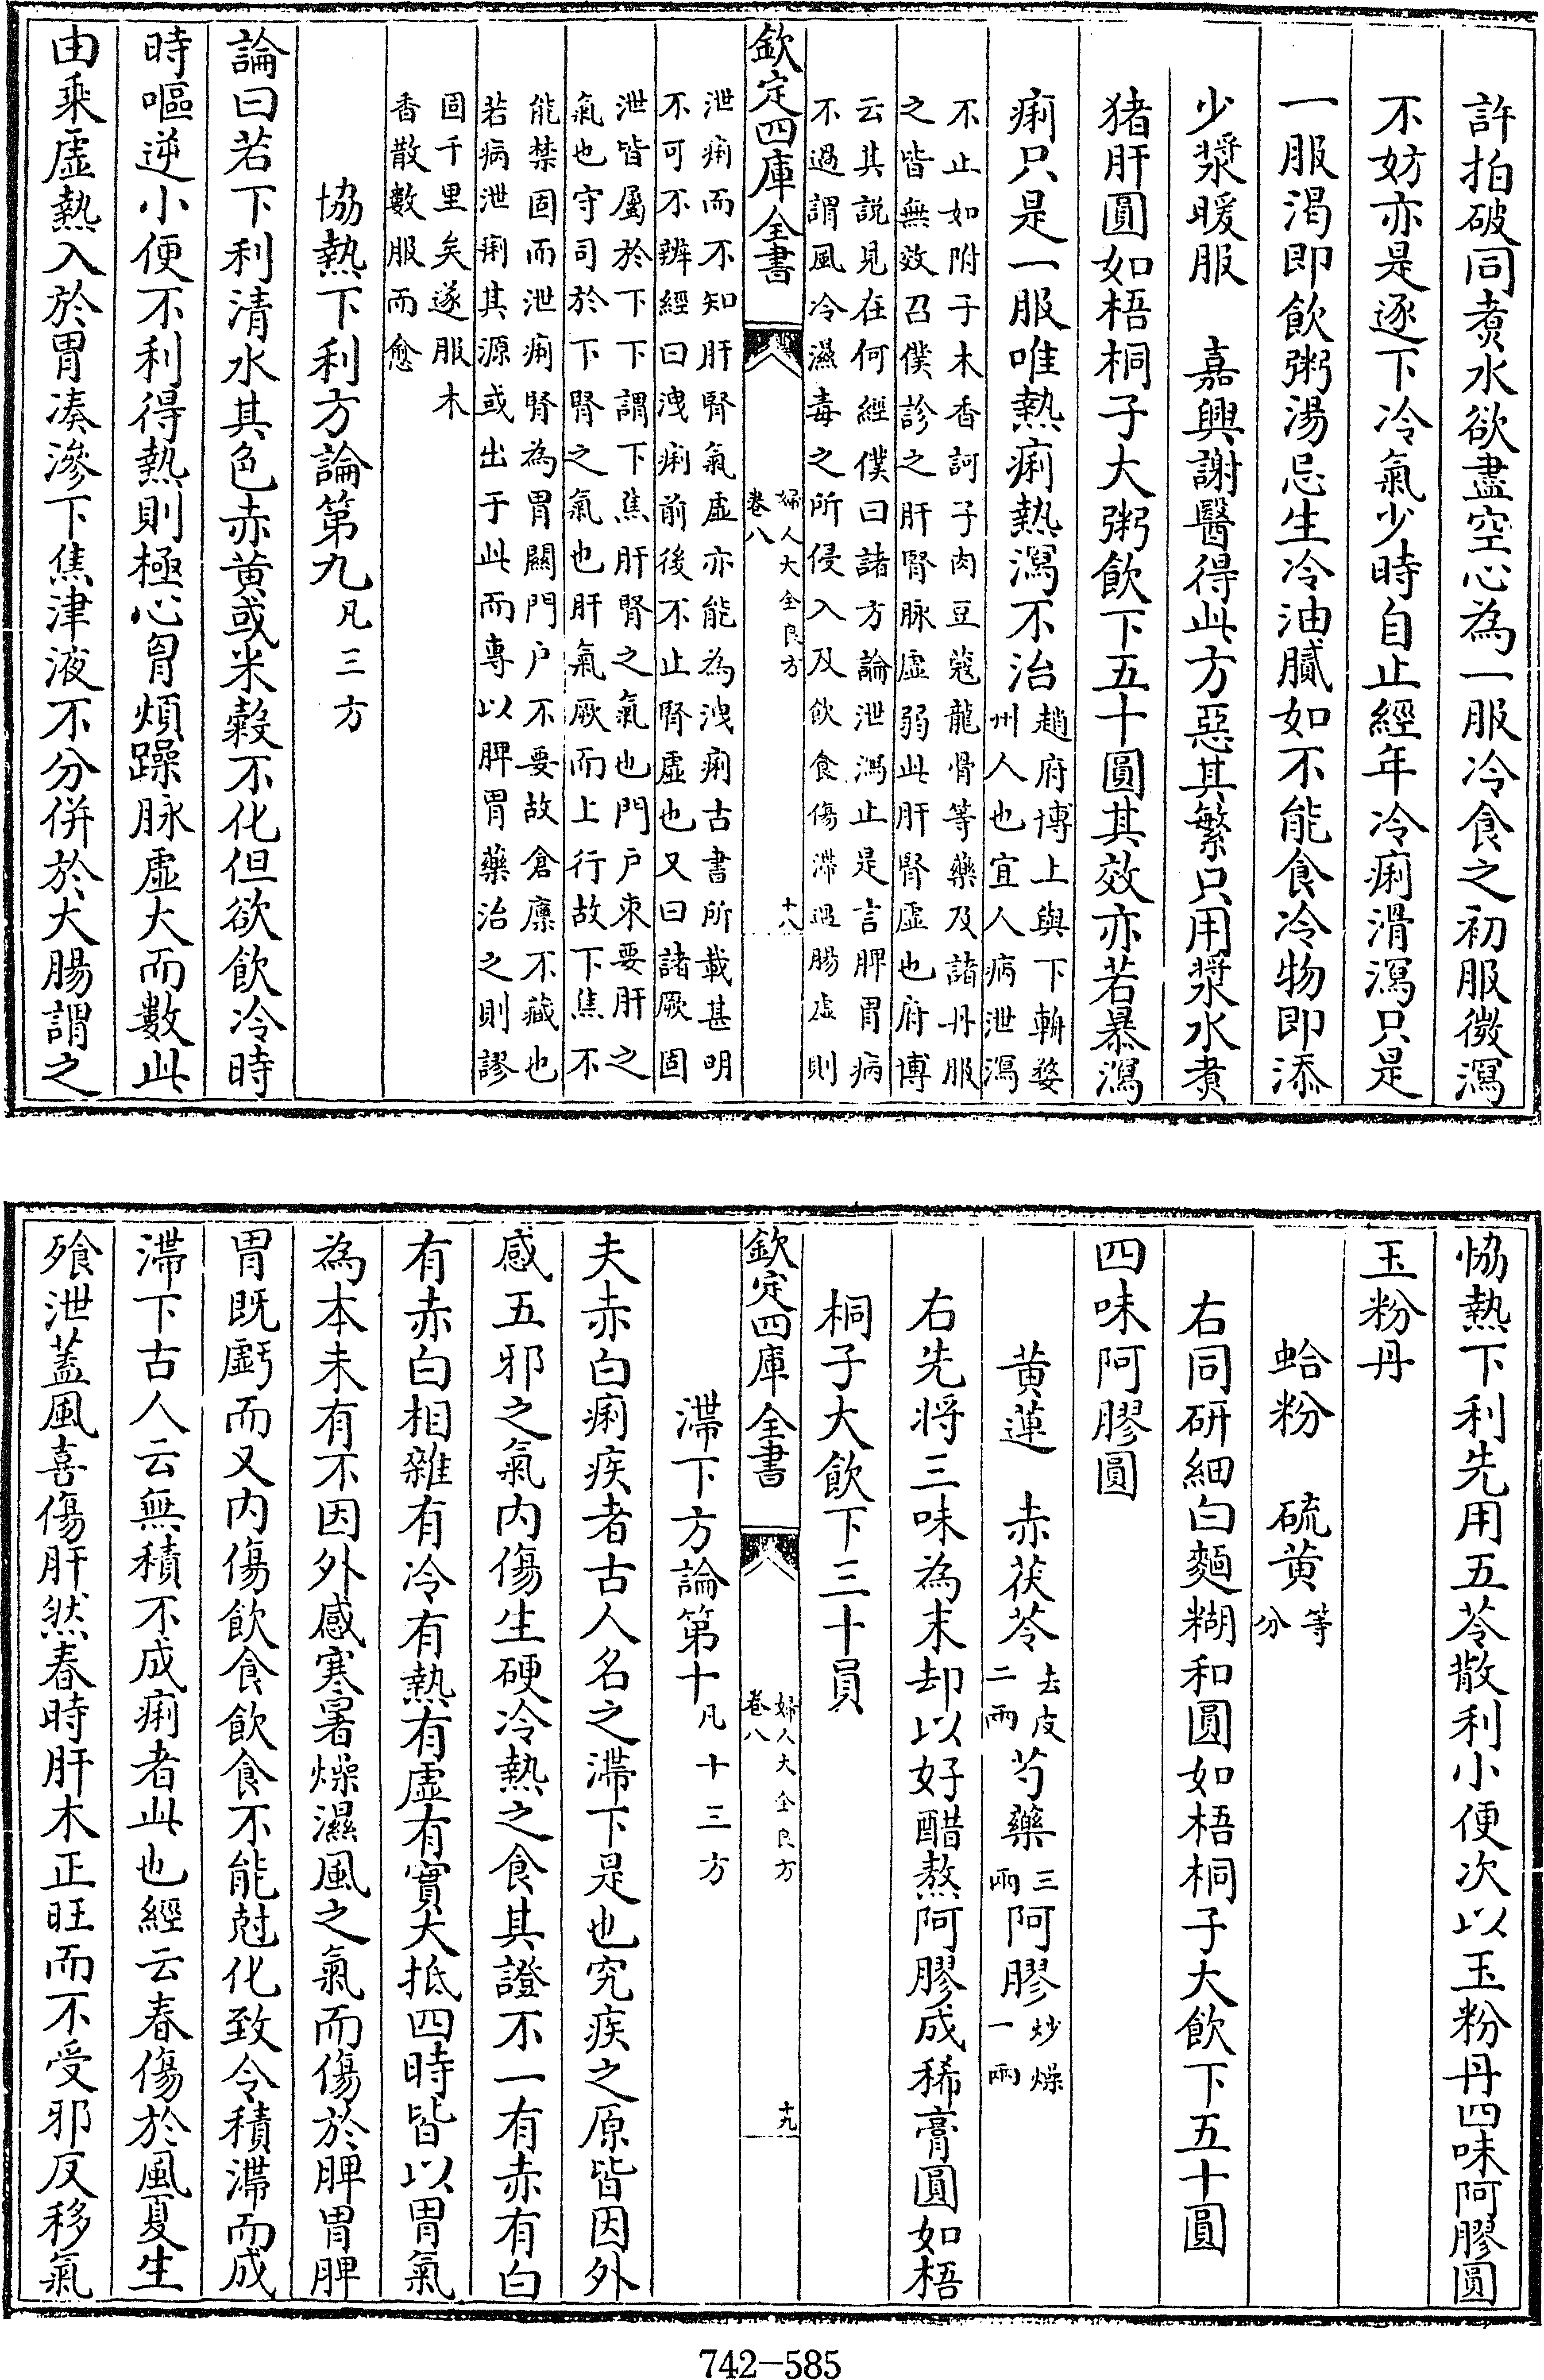 許拍破同煑水欲盡空心為一服冷食之初服微瀉
不妨亦是逐下冷氣少時自止經年冷痢滑瀉只是
一服渴即飲粥湯忌生冷油膩如不能食冷物即添
少漿暖服　嘉興謝醫得此方惡其繁只用漿水煑
猪肝圓如梧桐子大粥飲下五十圓其效亦若暴瀉
痢只是一服唯熱痢熱瀉不治
趙府博上與下輈婺
州人也宜人病泄瀉
不止如附子木香訶子肉豆蔻龍骨等藥及諸丹服
之皆無效召僕診之肝腎脉虚弱此肝腎虚也府博
云其説見在何經僕曰諸方論泄瀉止是言脾胃病
不過謂風冷濕毒之所侵入及飲食傷滯遇腸虚則
欽定四庫全書
婦人大全良方
卷八
十八
泄痢而不知肝腎氣虚亦能為洩痢古書所載甚明
不可不辨經曰洩痢前後不止腎虚也又曰諸厥固
泄皆屬於下下謂下焦肝腎之氣也門户束要肝之
氣也守司於下腎之氣也肝氣厥而上行故下焦不
能禁固而泄痢腎為胃關門户不要故倉廪不藏也
若病泄痢其源或出于此而專以脾胃藥治之則謬
固千里矣遂服木
香散數服而愈
協熱下利方論第九凡三方
論曰若下利清水其色赤黄或米穀不化但欲飲冷時
時嘔逆小便不利得熱則極心胷煩躁脉虚大而數此
由乘虚熱入於胃凑滲下焦津液不分併於大腸謂之
恊熱下利先用五苓散利小便次以玉粉丹四味阿膠圓
玉粉丹
蛤粉　硫黄
等
分
右同研細白麵糊和圓如梧桐子大飲下五十圓
四味阿膠圓
黄蓮　赤茯苓
去皮
二兩
芍藥
三
兩
阿膠
炒燥
一兩
右先将三味為末却以好醋熬阿膠成稀膏圓如梧
桐子大飲下三十員
欽定四庫全書
婦人大全良方
卷八
十九
滯下方論第十凡十三方
夫赤白痢疾者古人名之滯下是也究疾之原皆因外
感五邪之氣内傷生硬冷熱之食其證不一有赤有白
有赤白相雜有冷有熱有虚有實大抵四時皆以胃氣
為本未有不因外感寒暑燥濕風之氣而傷於脾胃脾
胃既虧而又内傷飲食飲食不能尅化致令積滯而成
滯下古人云無積不成痢者此也經云春傷於風夏生
飱泄蓋風喜傷肝然春時肝木正旺而不受邪反移氣
742—585